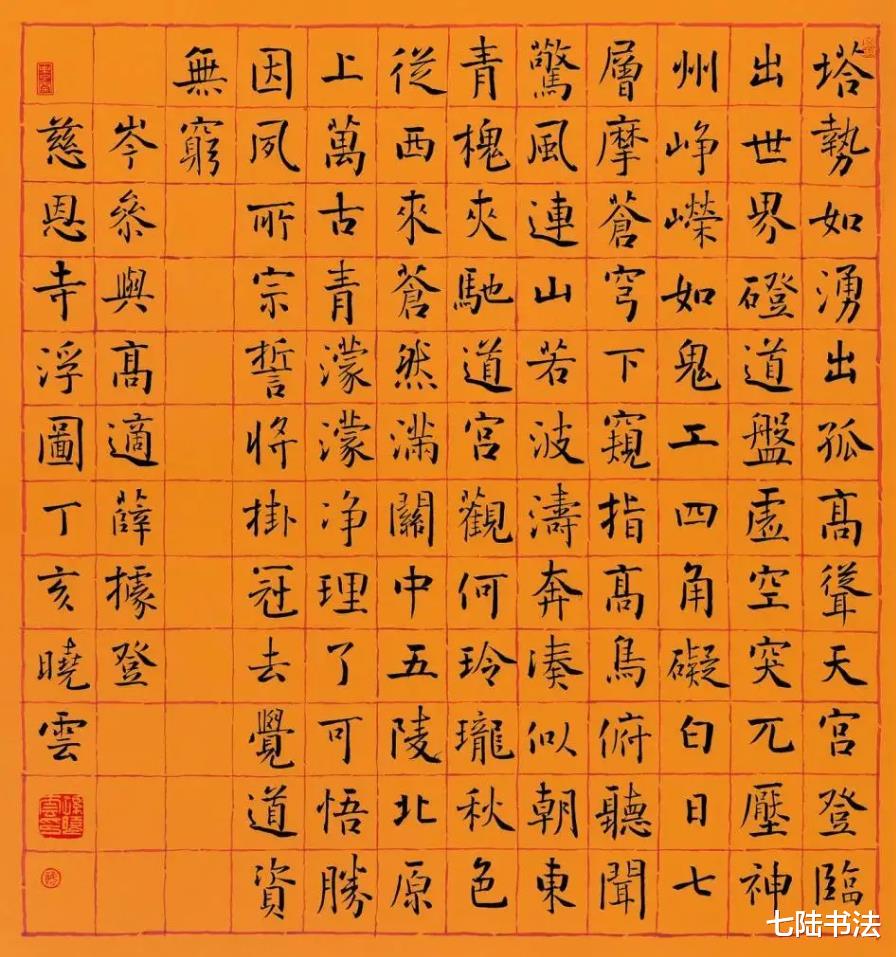 塔勢如湧出孤高聳天宮登臨
出世界磴道盤虛空突兀壓神
州崢嶸如鬼工四角礙白日七
層摩蒼穹下窺指高鳥俯聽聞
驚風連山若波濤奔湊似朝東
青槐夾馳道宮觀何玲瓏秋色
從西來蒼然滿關中五陵北原
上萬古青濛濛净理了可悟勝
因夙所宗誓將掛冠去覺道資
無窮
岑參與高適薛據登
慈恩寺浮圖丁亥曉雲
七陆书法